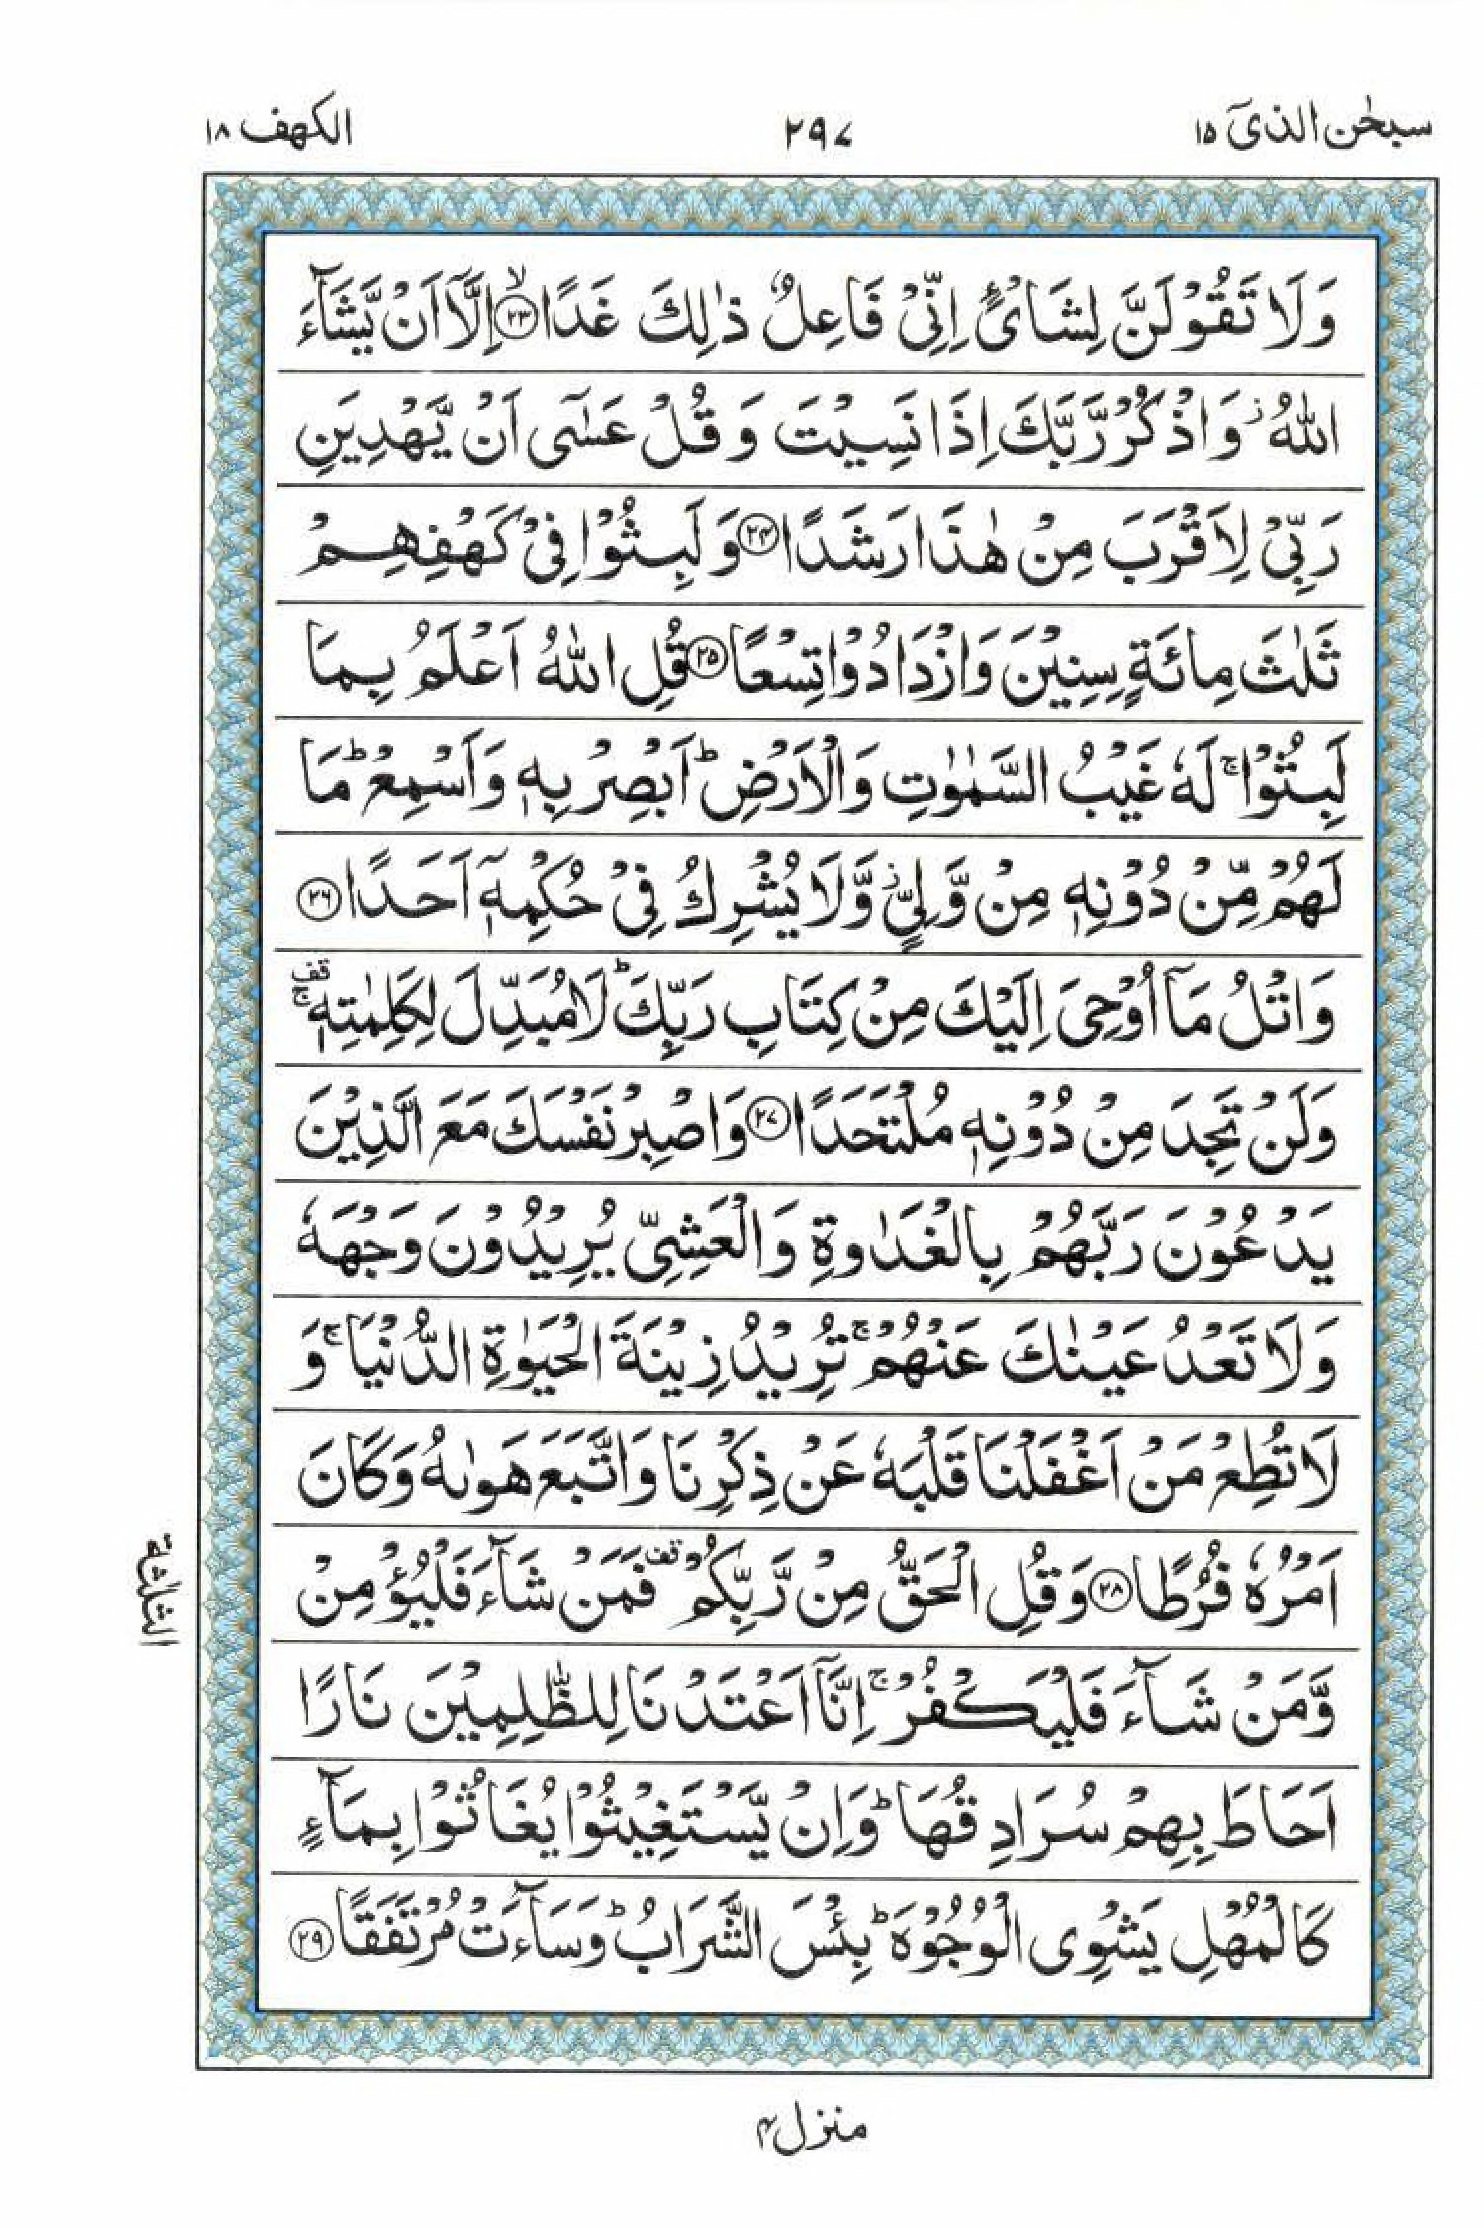 سبحٰن الذیٓ ١٥
٢٩٧
الكهف ١٨
وَلَا تَقُوْلَنَّ لِشَایْءٍ اِنِّیْ فَاعِلٌ ذٰلِكَ غَدًا ۙ‏﴿٢٣﴾ اِلَّاۤ اَنْ یَّشَآءَ
اللّٰهُ ؗ وَاذْكُرْ رَّبَّكَ اِذَا نَسِیْتَ وَقُلْ عَسٰۤی اَنْ یَّهْدِیَنِ
رَبِّیْ لِاَقْرَبَ مِنْ هٰذَا رَشَدًا ﴿٢٤﴾ وَلَبِثُوْا فِیْ كَهْفِهِمْ
ثَلٰثَ مِائَةٍ سِنِیْنَ وَازْدَادُوْا تِسْعًا ﴿٢٥﴾ قُلِ اللّٰهُ اَعْلَمُ بِمَا
لَبِثُوْا ۚ لَهٗ غَیْبُ السَّمٰوٰتِ وَالْاَرْضِ ؕ اَبْصِرْ بِهٖ وَاَسْمِعْ ؕ مَا
لَهُمْ مِّنْ دُوْنِهٖ مِنْ وَّلِیٍّ ؗ وَّلَا یُشْرِكُ فِیْ حُكْمِهٖۤ اَحَدًا ﴿٢٦﴾
وَاتْلُ مَاۤ اُوْحِیَ اِلَیْكَ مِنْ كِتَابِ رَبِّكَ ؕ لَا مُبَدِّلَ لِكَلِمٰتِهٖ ۚ قف
وَلَنْ تَجِدَ مِنْ دُوْنِهٖ مُلْتَحَدًا ﴿٢٧﴾ وَاصْبِرْ نَفْسَكَ مَعَ الَّذِیْنَ
یَدْعُوْنَ رَبَّهُمْ بِالْغَدٰوةِ وَالْعَشِیِّ یُرِیْدُوْنَ وَجْهَهٗ
وَلَا تَعْدُ عَیْنٰكَ عَنْهُمْ ۚ تُرِیْدُ زِیْنَةَ الْحَیٰوةِ الدُّنْیَا ۚ وَ
لَا تُطِعْ مَنْ اَغْفَلْنَا قَلْبَهٗ عَنْ ذِكْرِنَا وَاتَّبَعَ هَوٰىهُ وَكَانَ
اَمْرُهٗ فُرُطًا ﴿٢٨﴾ وَقُلِ الْحَقُّ مِنْ رَّبِّكُمْ قف فَمَنْ شَآءَ فَلْیُؤْمِنْ
وَّمَنْ شَآءَ فَلْیَكْفُرْ ۚ اِنَّاۤ اَعْتَدْنَا لِلظّٰلِمِیْنَ نَارًا
اَحَاطَ بِهِمْ سُرَادِقُهَا ؕ وَاِنْ یَّسْتَغِیْثُوْا یُغَاثُوْا بِمَآءٍ
كَالْمُهْلِ یَشْوِی الْوُجُوْهَ ؕ بِئْسَ الشَّرَابُ ؕ وَسَآءَتْ مُرْتَفَقًا ﴿٢٩﴾
الثلثة
منزل ٤